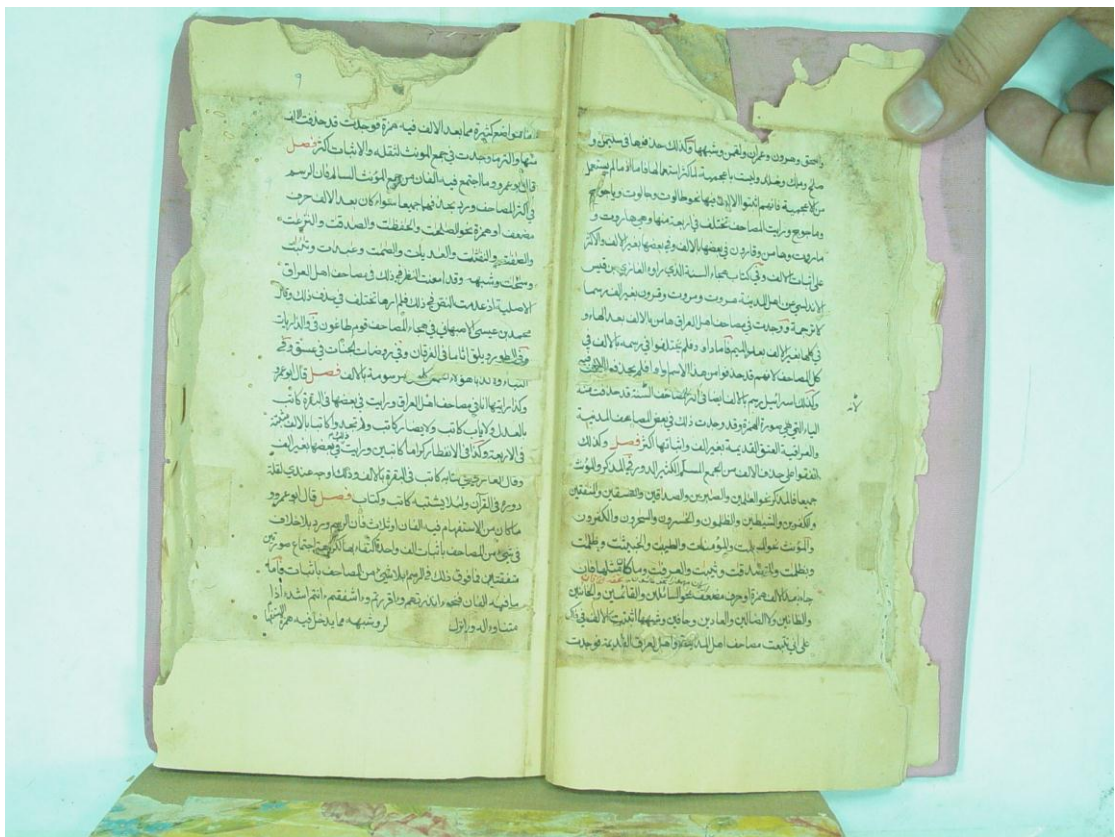 واسحق وهرون وعمرن ولقمن وشبهها وكذلك حذفوها في سليمن و
صالح وملك وخلد وليست باعجمية لما كثر استعمالها فاما ما لم يستعمل
من الاعجمية فانهم اثبتوا الالف فيها نحو طالوت وجالوت وياجوج
وماجوج ورايت المصاحف تختلف في اربعة منها وهي هاروت و
ماروت وهامن وقارون في بعضها بالالف وفي بعضها بغير الالف والاكثر
على اثبات الالف وفي كتاب هجاء السنة الذي رواه الغازي بن قيس
الاندلسي عن اهل المدينة هروت ومروت وقرون بغير الف رسما
لا ترجمة ووجدت في مصاحف اهل العراق هامن بالالف بعد الهاء و
في كلها بغير الالف بعد الميم فاما داود فلم يختلفوا في رسمه بالالف في
كل المصاحف لانهم قد حذفوا من هذا الاسم واوا فلم يحذفوا
وكذلك اسرائيل رسم بالالف ايضا في اكثر المصاحف قد حذفت منه
لانه
الياء التي هي صورة الهمزة وقد وجدت ذلك في بعض المصاحف المدنية
والعراقية العتق القديمة بغير الف واثباتها اكثر فصل وكذلك
اتفقوا على حذف الالف من الجمع السالم الكثير الدور في المذكر والمؤنث
جميعا فالمذكر نحو العلمين والصبرين والصدقين والفسقين والمنفقين
والكفرين والشيطين والظلمون والخسرون والسحرون والكفرون
والمؤنث نحو المسلمت والمؤمنت والطيبت والخبيثت وظلمت
والمتصدقت وثيبت والغرفت وما كان مثله فان
جاء بعد الالف همزة او حرف مضعف نحو السائلين والقائمين والخائنين
والظانين ولا الضالين والعادين وحافين وشبهها اثبتت الالف في ذلك
على اني تتبعت مصاحف اهل المدينة واهل العراق القديمة فوجدت
٩
فيها مواضع كثيرة مما بعد الالف فيه همزة قد حذفت الالف
منها واكثر ما وجدت في جمع المونث لثقله والاثبات اكثر فصل
قال ابو عمرو وما اجتمع فيه الفان من جمع المؤنث السالم فان الرسم
في اكثر المصاحف ورد بحذفهما جميعا سواء كان بعد الالف حرف
مضعف او همزة نحو الصلحت والحفظت والصدقت والنزعت
والصفت والنفثت والعديت والصئمت وعبدت وتئبت
وسئحت وشبهه وقد امعنت النظر في ذلك في مصاحف اهل العراق
الاصلية اذ عدمت النص في ذلك فلم ارها تختلف في حذف ذلك وقال
محمد بن عيسى الاصبهاني في هجاء المصاحف قوم طاغون في والذاريات
وفي الطور وفي الفرقان وفي روضات الجنات في عسق وفي
النباء ولا كذابا مرسومة بالالف فصل قال ابو عمرو
وكذا رايتها انا في مصاحف اهل العراق ورايت في بعضها في البقرة كاتب
بالعدل ولا ياب كاتب ولا يضار كاتب ولم تجدوا كاتبا بالالف مثبتة
في الاربعة وكذا في الانفطار كراما كاتبين ورايت في بعضها بغير الف
وقال الغازي في كتابه كاتب في البقرة بالالف وذلك اوجه عندي لقلة
دوره في القرآن ولئلا يشتبه كاتب وكتاب فصل قال ابو عمرو
ما كان من الاستفهام فيه الفان او ثلاث فان الرسم ورد بلا خلاف
في شيء من المصاحف باثبات الف واحدة اكتفاء بها كراهية اجتماع صورتين
متفقتين فما فوق ذلك في الرسم بلا شيء من المصاحف باثبات فاما
ما فيه الفان فنحو ءانذرتهم وءاقررتم وءاشفقتم ءانتم اشد اذا
متنا وءاله وءانزل وشبهه مما يدخل فيه همزة